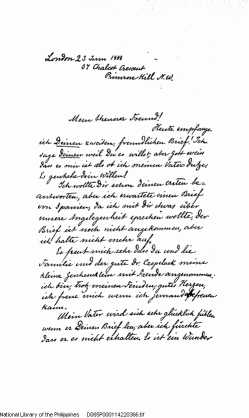 London 23 Juni 1888
37 Chalcot Crescent
Primrose Hill N.W.
Mein theurer Freund!
Heute empfange
ich Deinen zweiten, freundlichen Brief! Ich
sage deinen weil Du es willst, aber Gott weiss
dass es mir ist als ob ich meinen Vater dutze.
Es geschehe dein Willen!
Ich wollte Dir schon deinen ersten be-
antworten, aber ich erwartete einen Brief
von Spanien, da ich mit dir etwas über
unsere Angelegenheit sprechen wollte; der
Brief ist noch nicht angekommen, aber
ich halte nicht mehr auf.
Es freut mich sehr dass Du und die
Familie und der gute Dr. Czepelack meine
kleine Geschenklein mit Freuden angenommen.
ich bin, trotz meinen Feinden, gutes Herzens,
ich freue mich wenn ich jemand erfreuen
kann.
Mein Vater wird sich sehr glücklich fühlen
wenn er Deinen Brief bekom, aber ich fürchte
dass er es nicht erhalten. Es ist ein Wunder
National Library of the Philippines D005P000114220366.tif